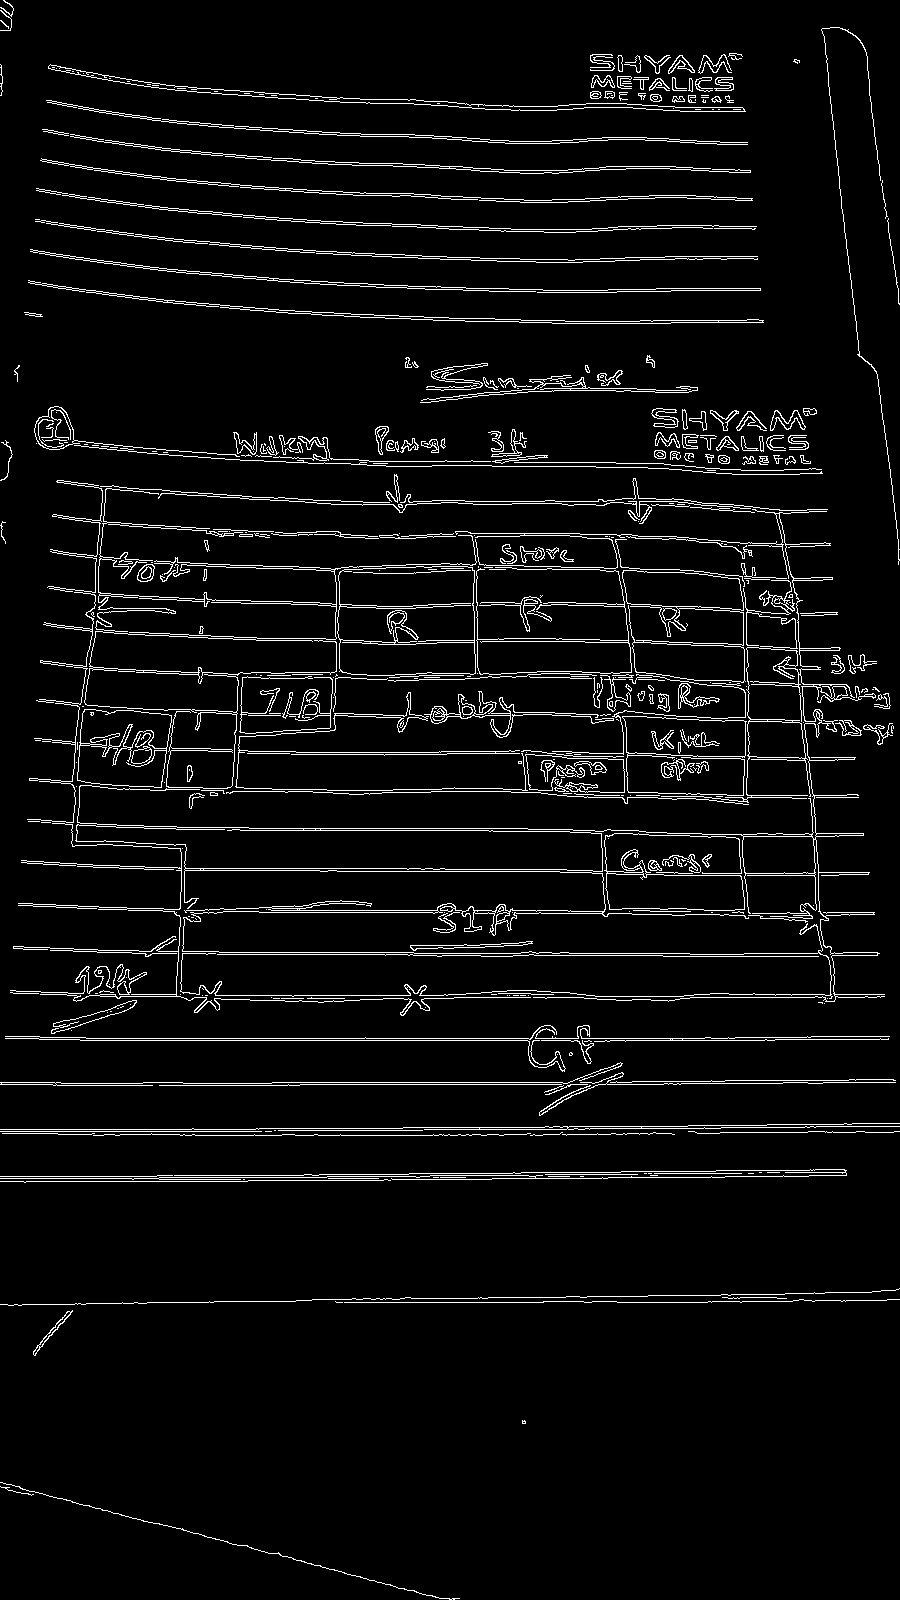 SHYAM
METALICS
ORE TO METAL
"Sunrise"
SHYAM
METALICS
ORE TO METAL
1 Walking Passage 3 ft
Store
40 ft
R R R
3 ft
Walking
Passage
T/B Lobby Living Room
T/B Kitch
open
Room
Garage
31 ft
19 ft
G.F